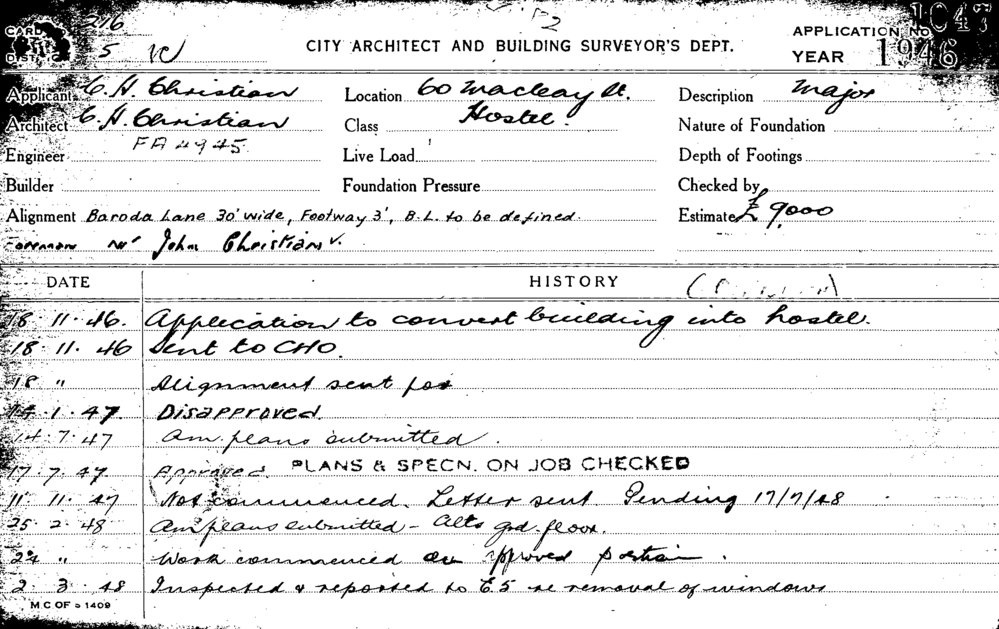 216
CARD 5 VC
DISTRICT
CITY ARCHITECT AND BUILDING SURVEYOR'S DEPT.
APPLICATION No 1047
YEAR 1946
Applicant C. H. Christian Location 60 Macleay St. Description Major
Architect C. H. Christian Class Hostel. Nature of Foundation
Engineer FA 4945 Live Load Depth of Footings
Builder Foundation Pressure Checked by
Alignment Baroda Lane 30' wide, Footway 3', B.L. to be defined. Estimate £9000
Foreman Mr John Christian
DATE HISTORY
18. 11. 46. Application to convert building into hostel.
18. 11. 46 Sent to CHO.
18 " Alignment sent for
14. 1. 47. Disapproved.
14. 7. 47 Am. plans submitted.
17. 7. 47 Approved. PLANS & SPECN. ON JOB CHECKED
11. 11. 47 Not commenced. Letter sent. Pending 17/7/48
25. 2. 48 Am. plans submitted - alts grd. floor.
24 " Work commenced on approved portion.
2. 3. 48 Inspected & reported to E.S re removal of windows
M C OF S 1409